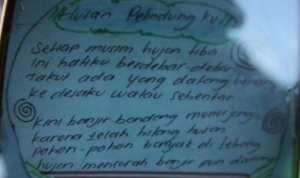 Hutan Pelindungku
Setiap musim hujan tiba
Ini hatiku berdebar-debar
Takut ada yang datang
Ke desaku walau sebentar
Kini banjir bandang menerjang
karena telah hilang hutan
pohon-pohon banyak di tebang
hujan mencurah banjir pun datang